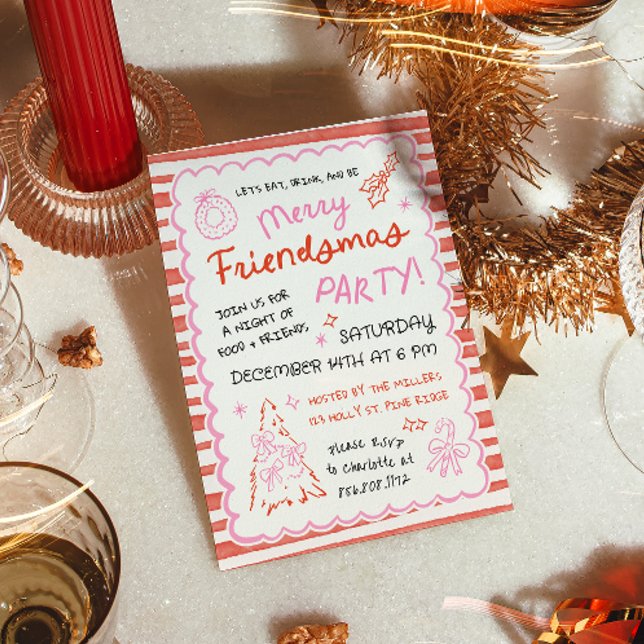 LET'S EAT, DRINK, AND BE
Merry
Friendsmas
PARTY!
JOIN US FOR
A NIGHT OF
FOOD + FRIENDS
SATURDAY
DECEMBER 14TH AT 6 PM
HOSTED BY THE MILLERS
123 HOLLY ST. PINE RIDGE
please RSVP
to Charlotte at
886.808.1172